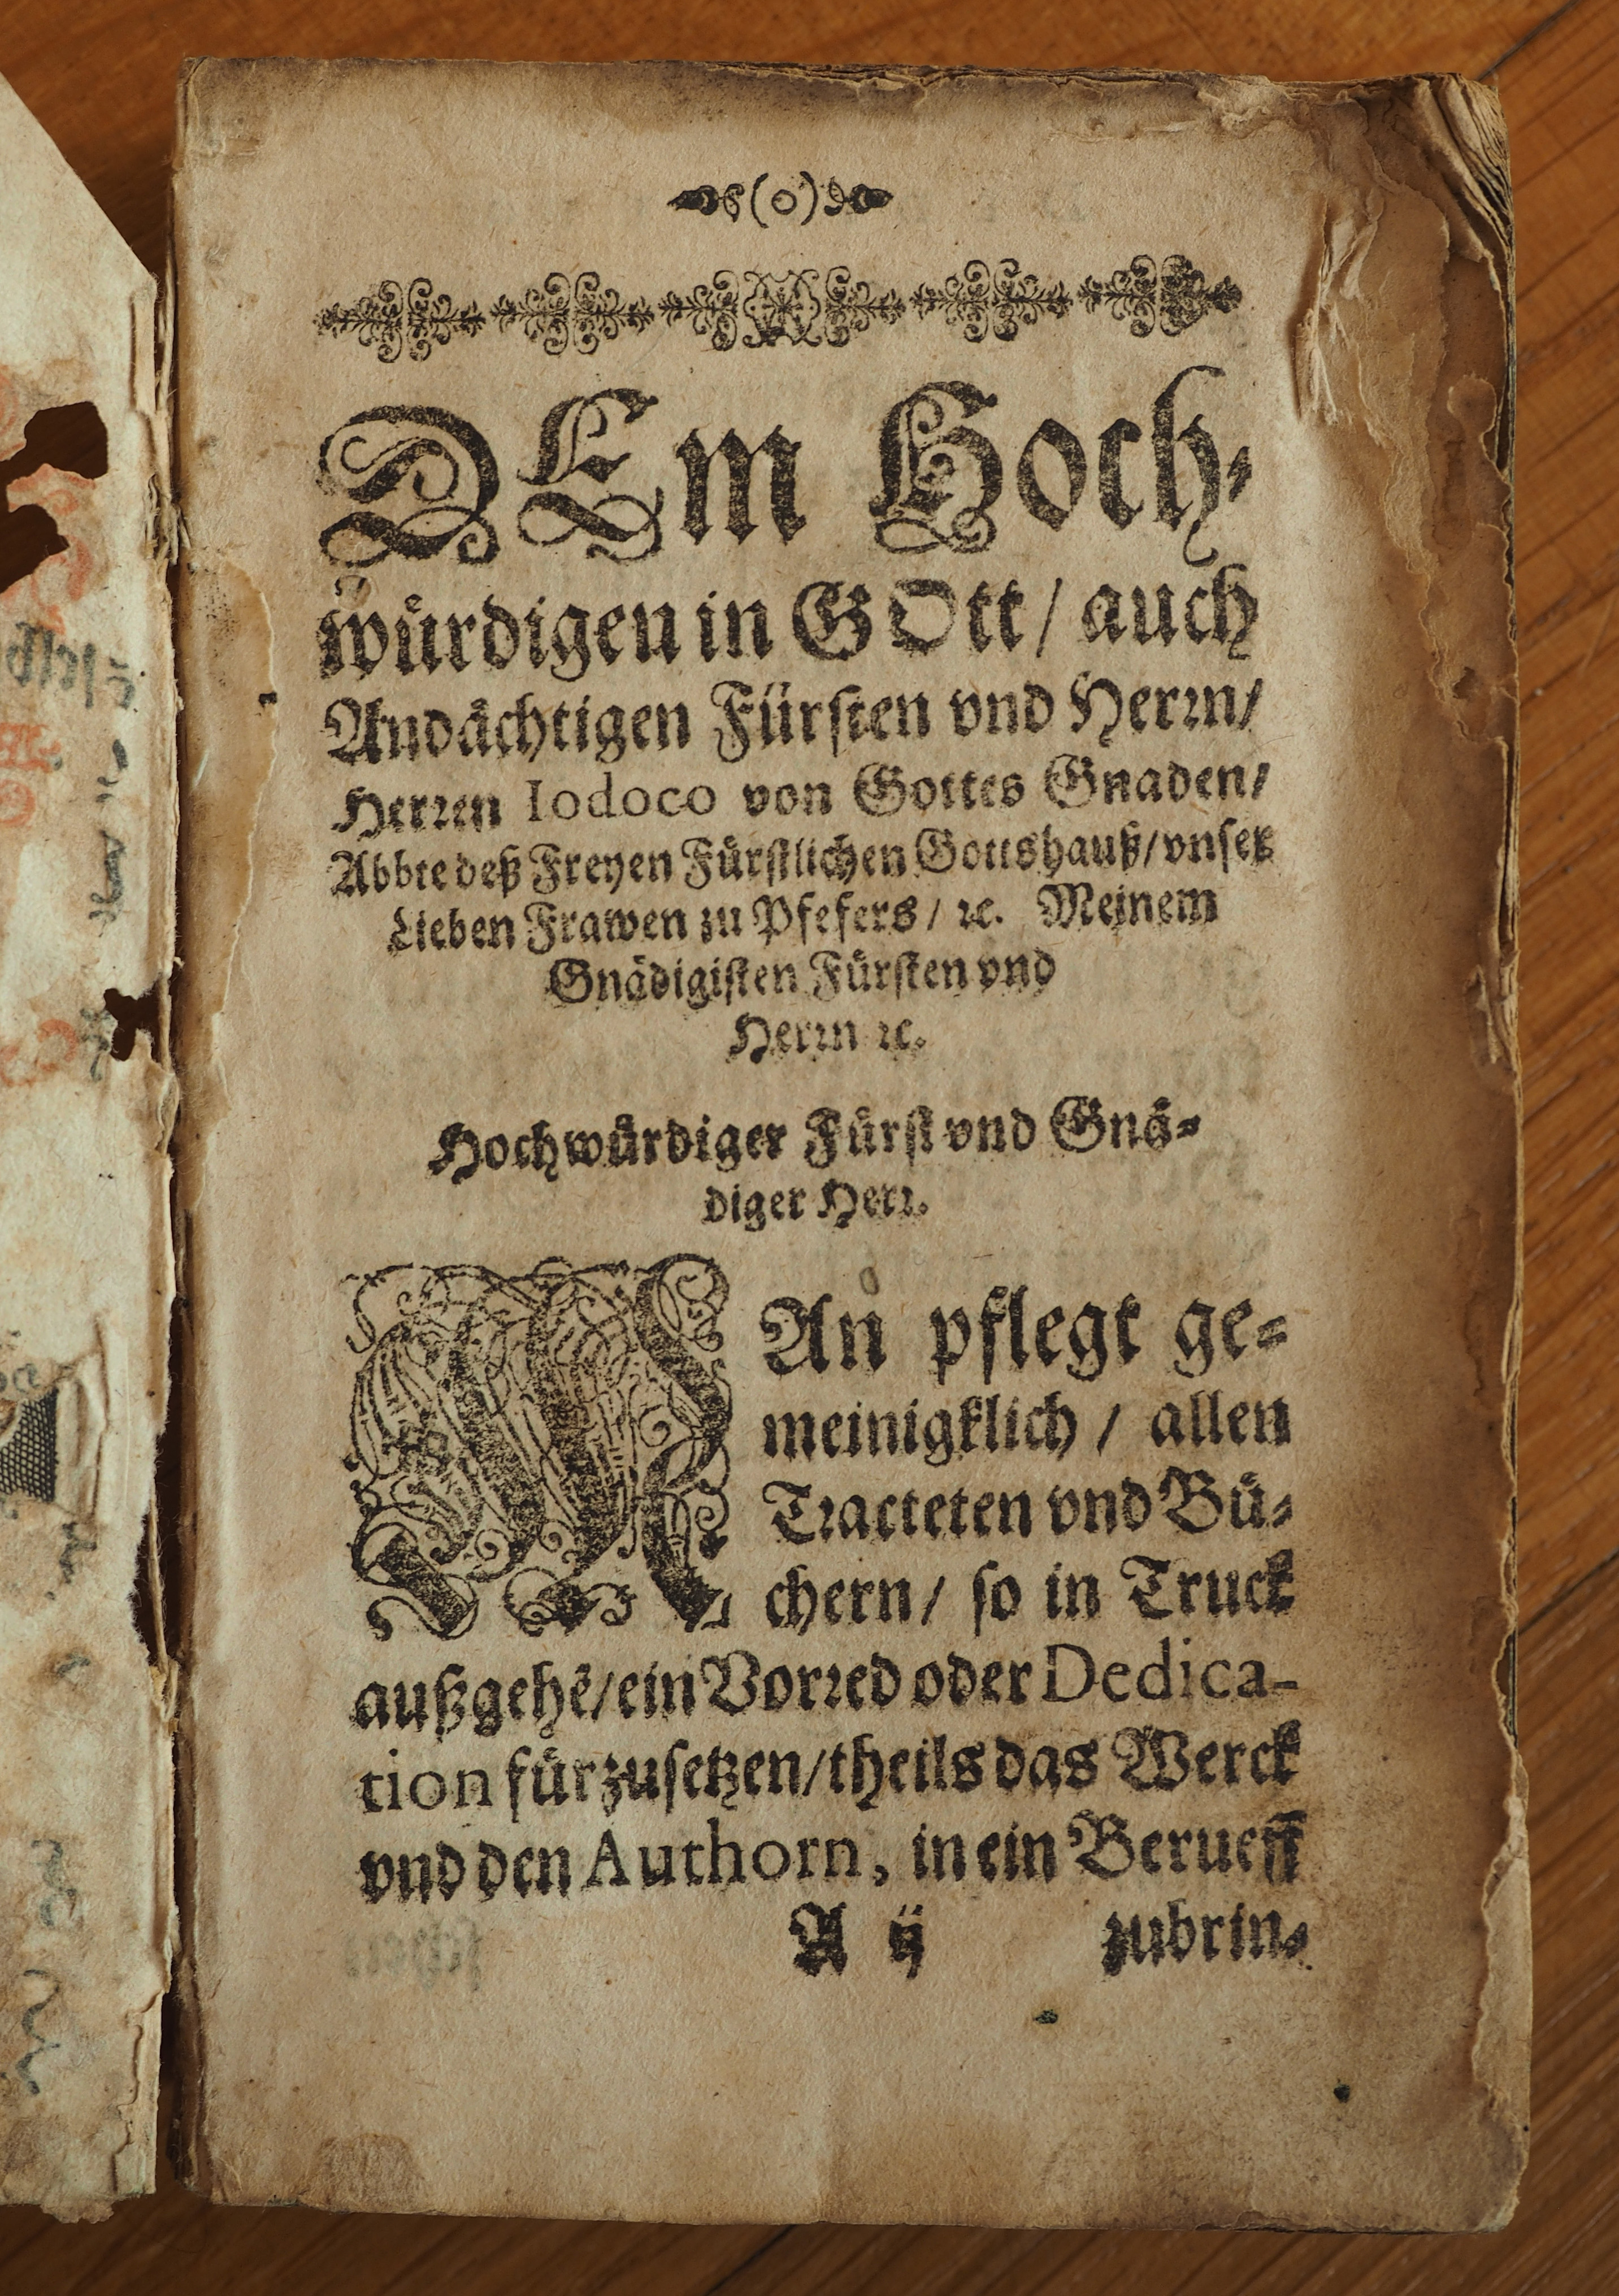 (o)
DEm Hoch-
würdigen in GOtt / auch
Andächtigen Fürsten vnd Herrn /
Herren Iodoco von Gottes Gnaden /
Abbte deß Freyen Fürstlichen Gottshauß / vnser
Lieben Frawen zu Pfefers / ꝛc. Meinem
Gnädigisten Fürsten vnd
Herrn ꝛc.
Hochwürdiger Fürst vnd Gnä-
diger Herr.
MAn pflegt ge-
meinigklich / allen
Tracteten vnd Bü-
chern / so in Truck
außgehẽ / ein Vorred oder Dedica-
tion fürzusetzen / theils das Werck
vnd den Authorn, in ein Berueff
A ij zubrin-